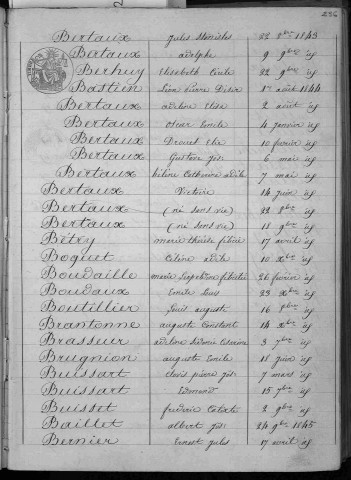 236
Bertaux Jules 22 8bre 1843
Bertaux adolphe 9 9bre id
Berhuy Elisabeth 22 9bre id
Bastien Léon Pierre Désiré 1er août 1844
Bertaux adeline Elise 2 août id
Bertaux oscar Emile 4 janvier id
Bertaux Drouet Elie 10 fevrier id
Bertaux Gustave jph 6 mai id
Bertaux héline Catherine adèle 7 mai id
Bertaux Victoire 14 juin id
Bertaux (né sans vie) 22 8bre id
Bertaux (né sans vie) 18 9bre id
Bétry marie 17 avril id
Boquet Céline adèle 10 Xbre id
Boudaille marie 26 fevrier id
Boudaux Emile 23 Xbre id
Boutillier Louis auguste 16 id
Brantonne auguste Constant 14 Xbre id
Brasseur adeline 3 7bre id
Brugnion auguste Emile 18 juin id
Buissart Clovis pierre jph 7 mars id
Buissart Edmond 15 7bre id
Buisset frederic 2 9bre id
Baillet albert jph 24 9bre 1845
Bernier Ernest Jules 17 avril id